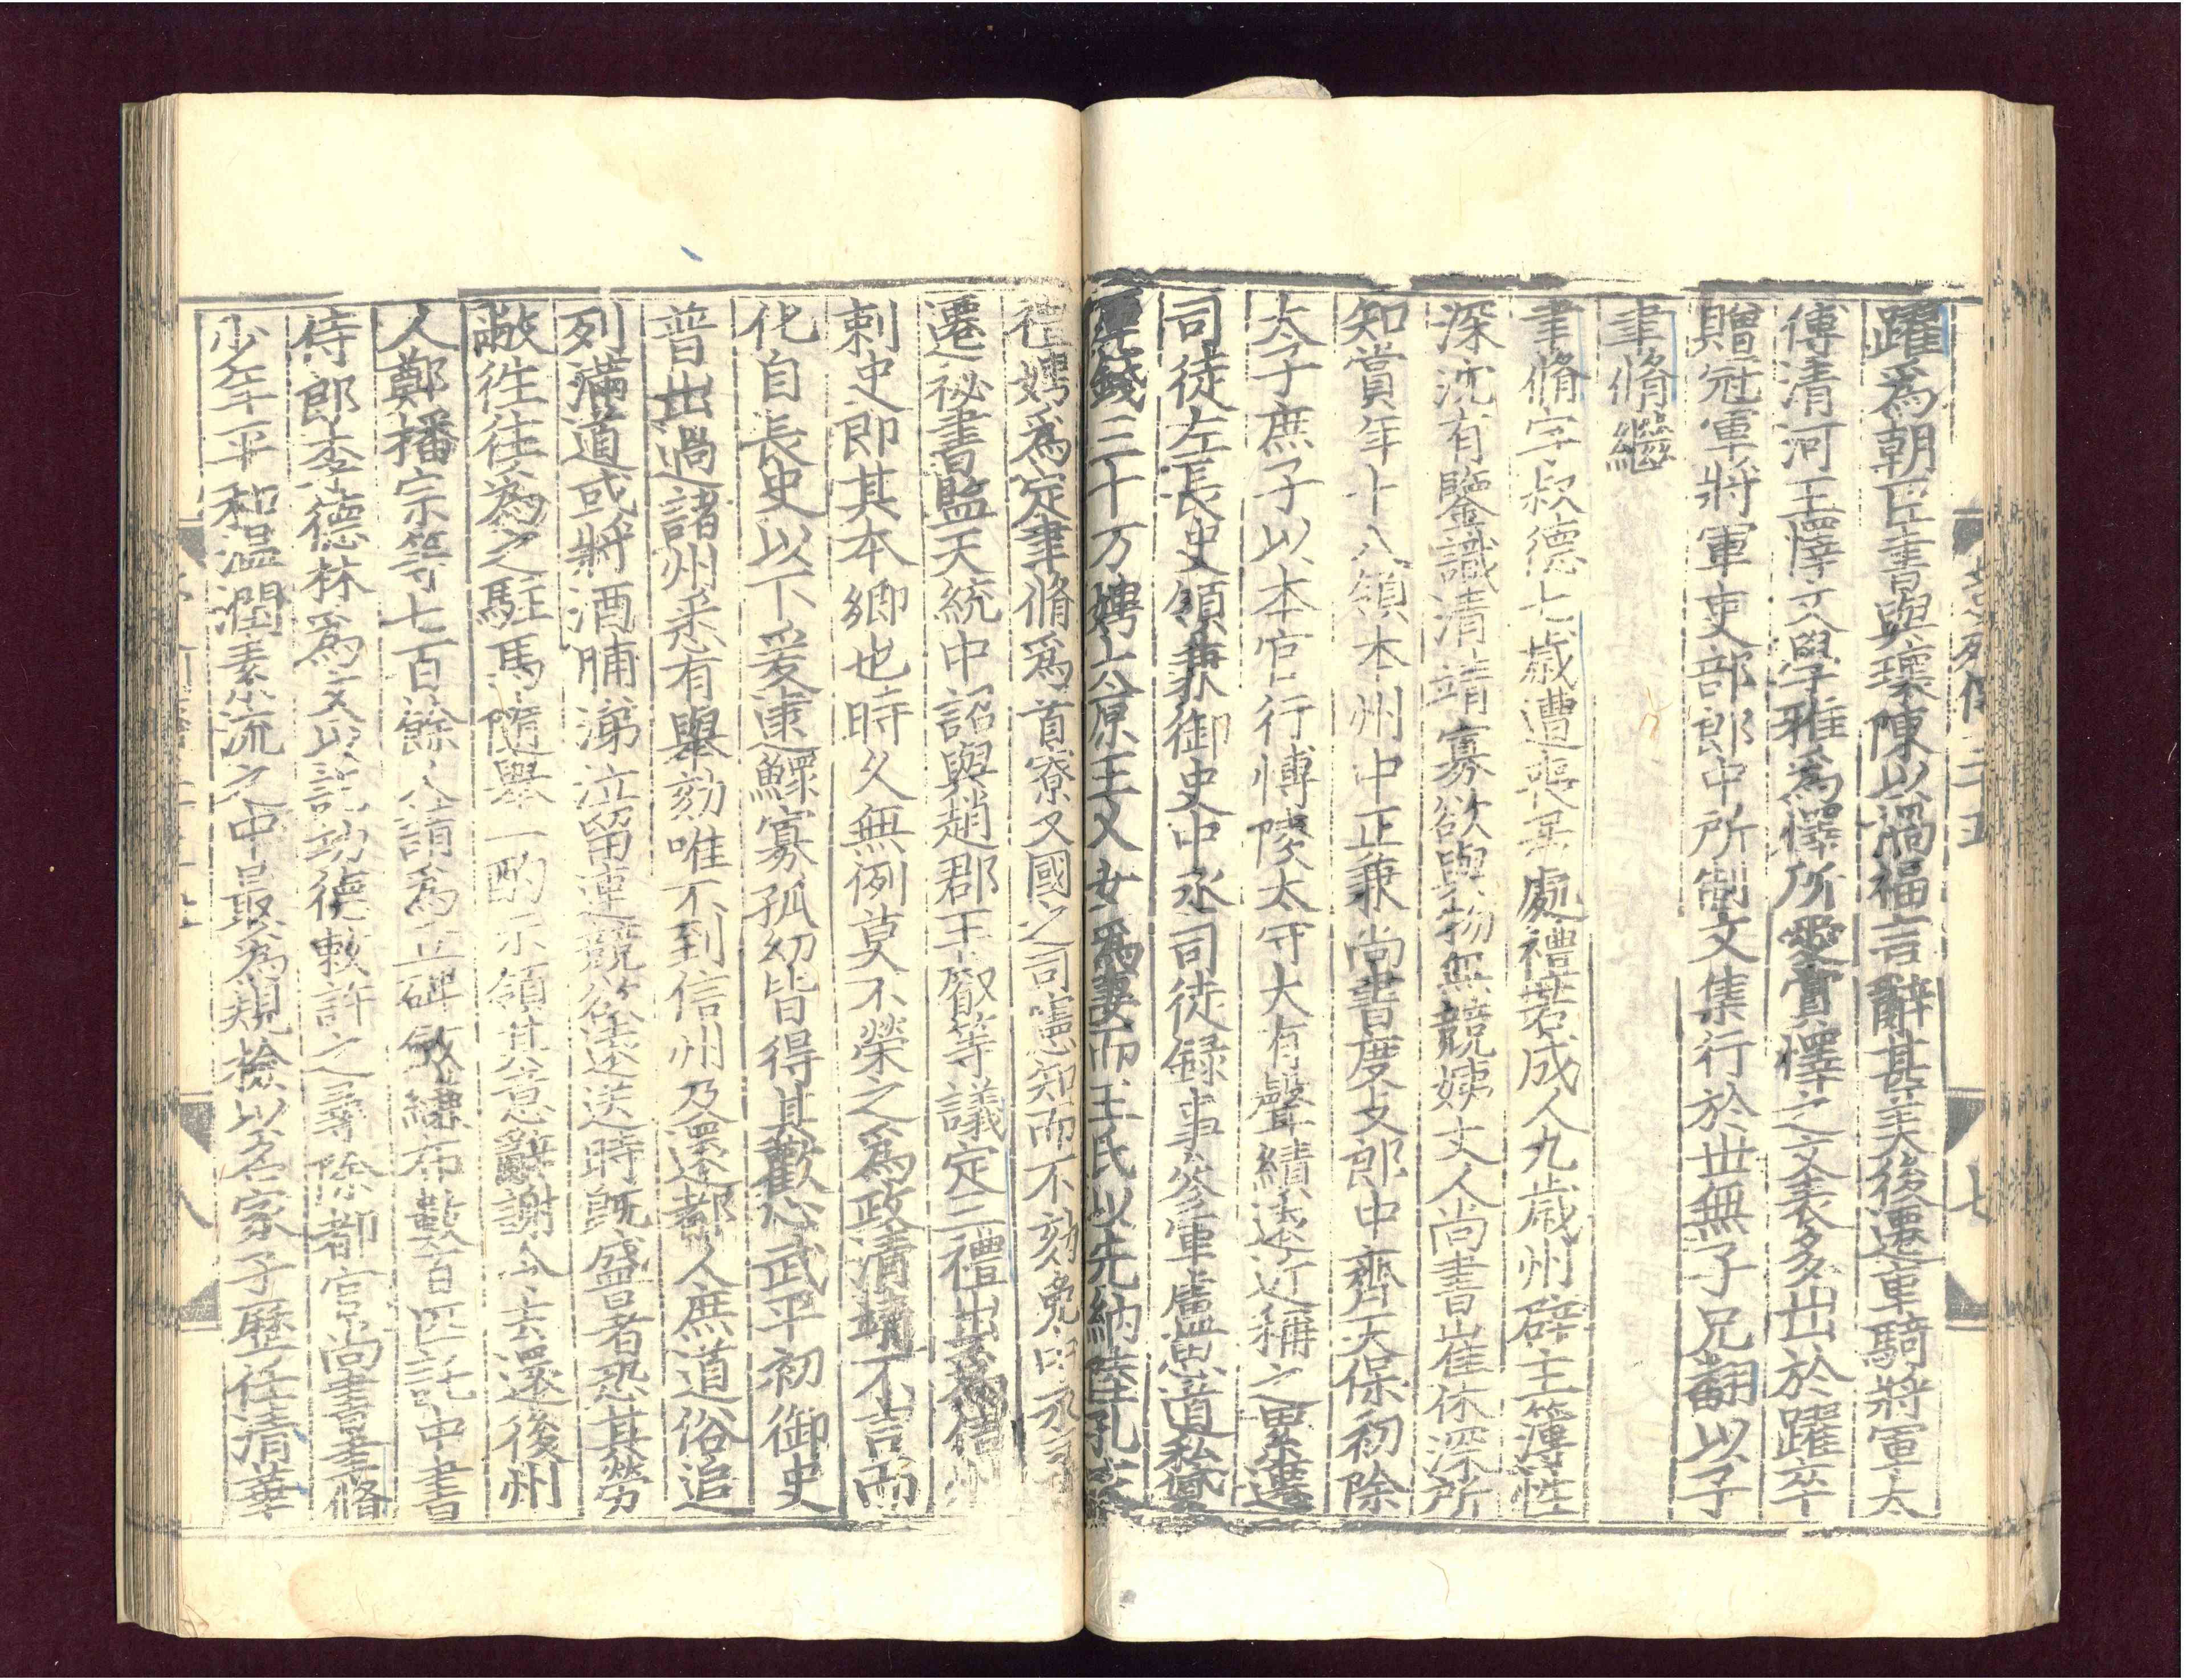 躍爲朝臣書與瓌陳以禍福言辭甚美後遷車騎將軍太
傅清河王懌文學雅爲懌所愛賞懌之文表多出於躍卒
贈冠軍將軍吏部郎中所制文集行於世無子兄翻以子
聿脩繼
聿脩字叔德七歲遭喪居處禮若成人九歲州辟主簿性
深沈有鑒識清靖寡欲與物無競姨丈人尚書崔休深所
知賞年十八領本州中正兼尚書度支郎中齊天保初除
太子庶子以本官行博陵太守大有聲績遠近稱之累遷
司徒左長史領兼御史中丞司徒録事參軍盧思道私貸
庫錢三十万娉太原王乂女爲妻而王氏以先納陸孔文
禮娉爲定聿脩爲首寮又國之司憲知而不劾免中丞尋
遷祕書監天統中詔與趙郡王叡等議定三禮出爲信州
刺史即其本鄉也時久無例莫不榮之爲政清靖不言而
化自長史以下爰逮鰥寡孤幼皆得其歡心武平初御史
普出過諸州悉有舉劾唯不到信州乃還都人庶道俗追
列滿道或將酒脯涕泣留連競欲遠送時既盛暑恐其勞
敝徃徃爲之駐馬隨舉一酌示領其意辭謝令去還後州
人鄭播宗等七百餘人請爲立碑斂縑布數百匹託中書
侍郎李德林爲文以記功德敕許之尋除都官尚書聿脩
少年平和温潤素流之中最爲規檢以名家子歷任清華
列傳三十五
七
八